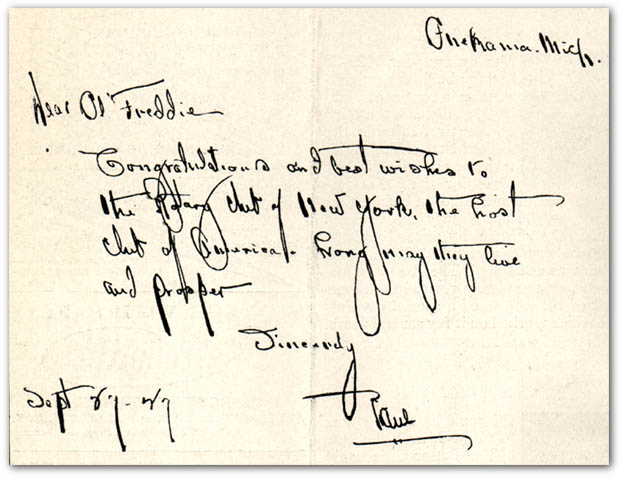 Onekama. Mich.
Dear Ol' Freddie
Congratulations and best wishes to
the Rotary Club of New York, the host
club of America. Long may they live
and prosper
Sincerely
Sept 27-27
Paul